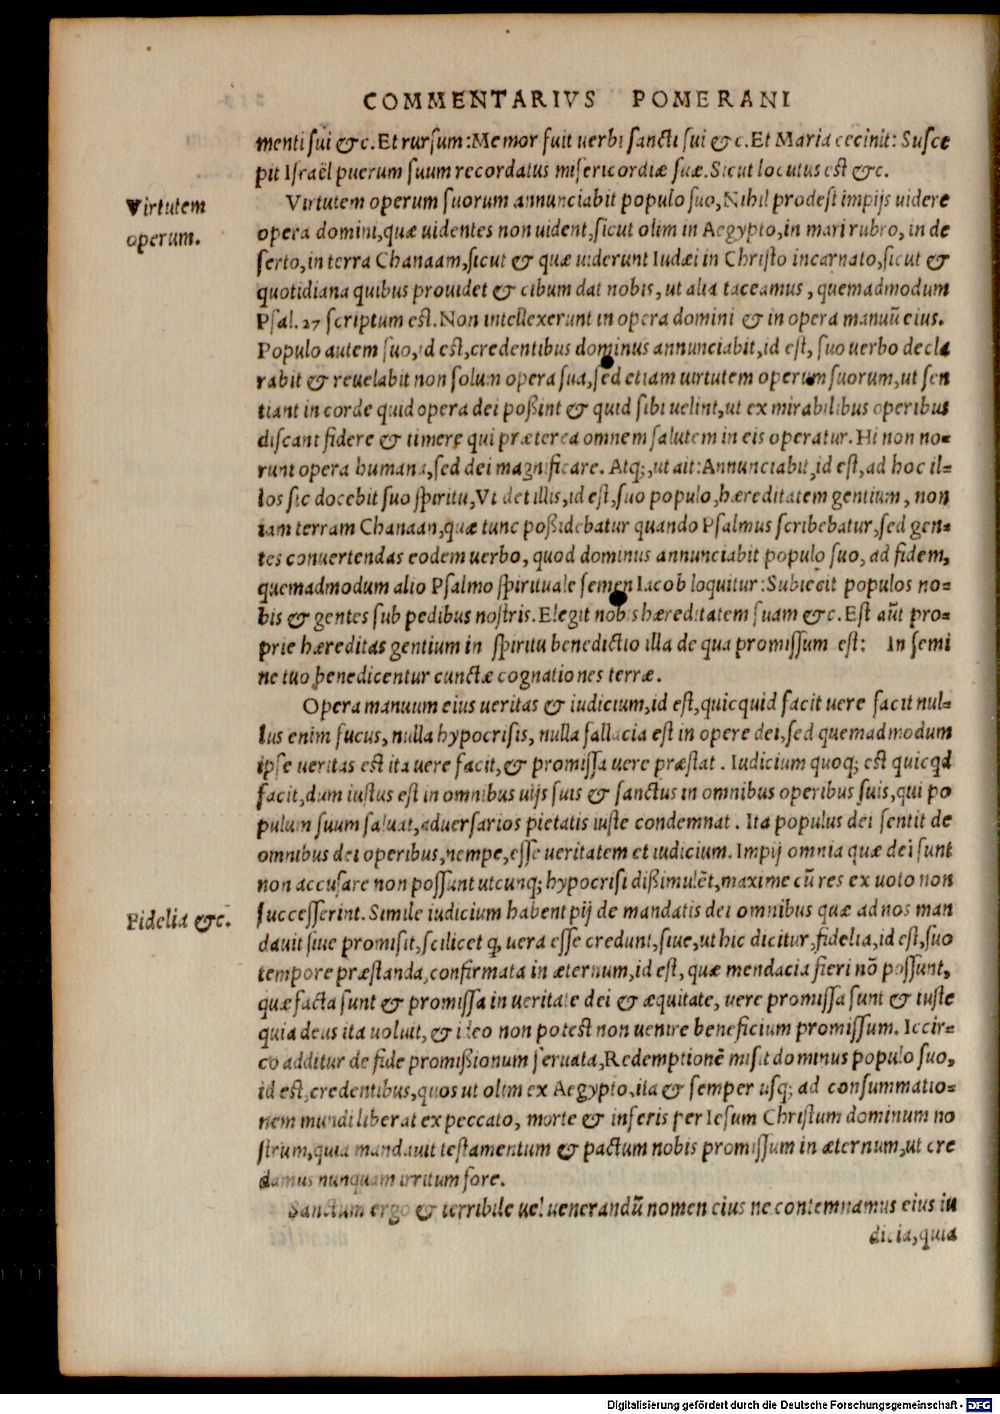 COMMENTARIVS POMERANI
menti sui &c. Et rursum: Memor fuit uerbi sancti sui &c. Et Maria cecinit: Susce
pit Israël puerum suum recordatus misericordiæ suæ. Sicut locutus est &c.
Virtutem
operum.
Virtutem operum suorum annunciabit populo suo, Nihil prodest impijs uidere
opera domini, quæ uidentes non uident, sicut olim in Aegypto, in mari rubro, in de
serto, in terra Chanaam, sicut & quæ uiderunt Iudæi in Christo incarnato, sicut &
quotidiana quibus prouidet & cibum dat nobis, ut alia taceamus, quemadmodum
Psal. 27 scriptum est. Non intellexerunt in opera domini & in opera manuũ eius.
Populo autem suo, id est, credentibus dominus annunciabit, id est, suo uerbo decla
rabit & reuelabit non solum opera sua, sed etiam uirtutem operum suorum, ut sen
tiant in corde quid opera dei poßint & quid sibi uelint, ut ex mirabilibus operibus
discant fidere & timere qui præterea omnem salutem in eis operatur. Hi non no-
runt opera humana, sed dei magnificare. Atq;, ut ait: Annunciabit, id est, ad hoc il-
los sic docebit suo spiritu, Vt det illis, id est, suo populo, hæreditatem gentium, non
iam terram Chanaan, quæ tunc poßidebatur quando Psalmus scribebatur, sed gen-
tes conuertendas eodem uerbo, quod dominus annunciabit populo suo, ad fidem,
quemadmodum alio Psalmo spirituale semen Iacob loquitur: Subiecit populos no-
bis & gentes sub pedibus nostris. Elegit nobis hæreditatem suam &c. Est aũt pro-
prie hæreditas gentium in spiritu benedictio illa de qua promissum est: In semi
ne tuo benedicentur cunctæ cognationes terræ.
Opera manuum eius ueritas & iudicium, id est, quicquid facit uere facit nul-
lus enim fucus, nulla hypocrisis, nulla fallacia est in opere dei, sed quemadmodum
ipse ueritas est ita uere facit, & promissa uere præstat. Iudicium quoq; est quicqd
facit, dum iustus est in omnibus uijs suis & sanctus in omnibus operibus suis, qui po
pulum suum saluat, aduersarios pietatis iuste condemnat. Ita populus dei sentit de
omnibus dei operibus, nempe, esse ueritatem et iudicium. Impij omnia quæ dei sunt
non accusare non possunt utcunq; hypocrisi dißimulẽt, maxime cũ res ex uoto non
Fidelia &c.
successerint. Simile iudicium habent pij de mandatis dei omnibus quæ ad nos man
dauit siue promisit, scilicet q, uera esse credunt, siue, ut hic dicitur, fidelia, id est, suo
tempore præstanda, confirmata in æternum, id est, quæ mendacia fieri nõ possunt,
quæ facta sunt & promissa in ueritate dei & æquitate, uere promissa sunt & iuste
quia deus ita uoluit, & ideo non potest non uenire beneficium promissum. Iccir-
co additur de fide promißionum seruata, Redemptionẽ misit dominus populo suo,
id est, credentibus, quos ut olim ex Aegypto, ita & semper usq; ad consummatio-
nem mundi liberat ex peccato, morte & inferis per Iesum Christum dominum no
strum, quia mandauit testamentum & pactum nobis promissum in æternum, ut cre
damus nunquam irritum fore.
Sanctum ergo & terribile uel uenerandũ nomen eius ne contemnamus eius iu
dicia, quia
Digitalisierung gefördert durch die Deutsche Forschungsgemeinschaft - DFG